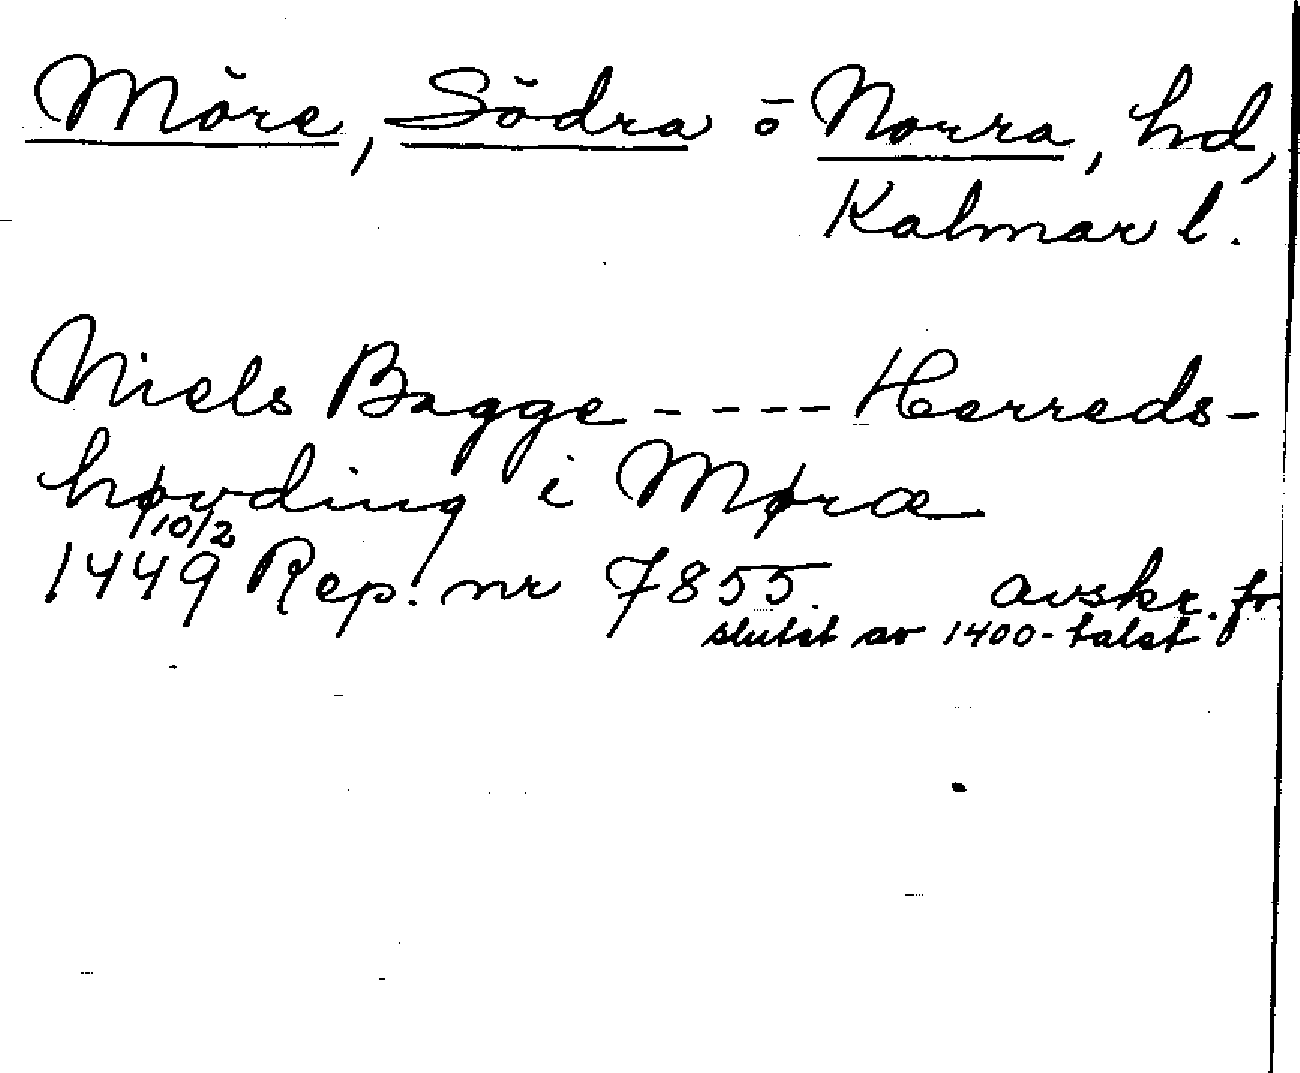 Möre, Södra ō Norra, hd,
Kalmar l.
Niels Bagge ---- Herreds-
høvding i Møræ
10/2
1449 Rep. nr 7855 avskr. fr
slutet av 1400-talet